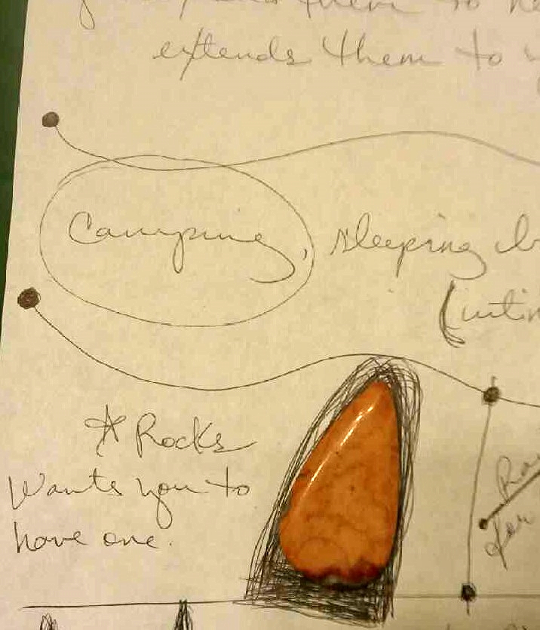 them to
extends them to
Camping, sleeping
* Rocks
Wants you to
have one.
for